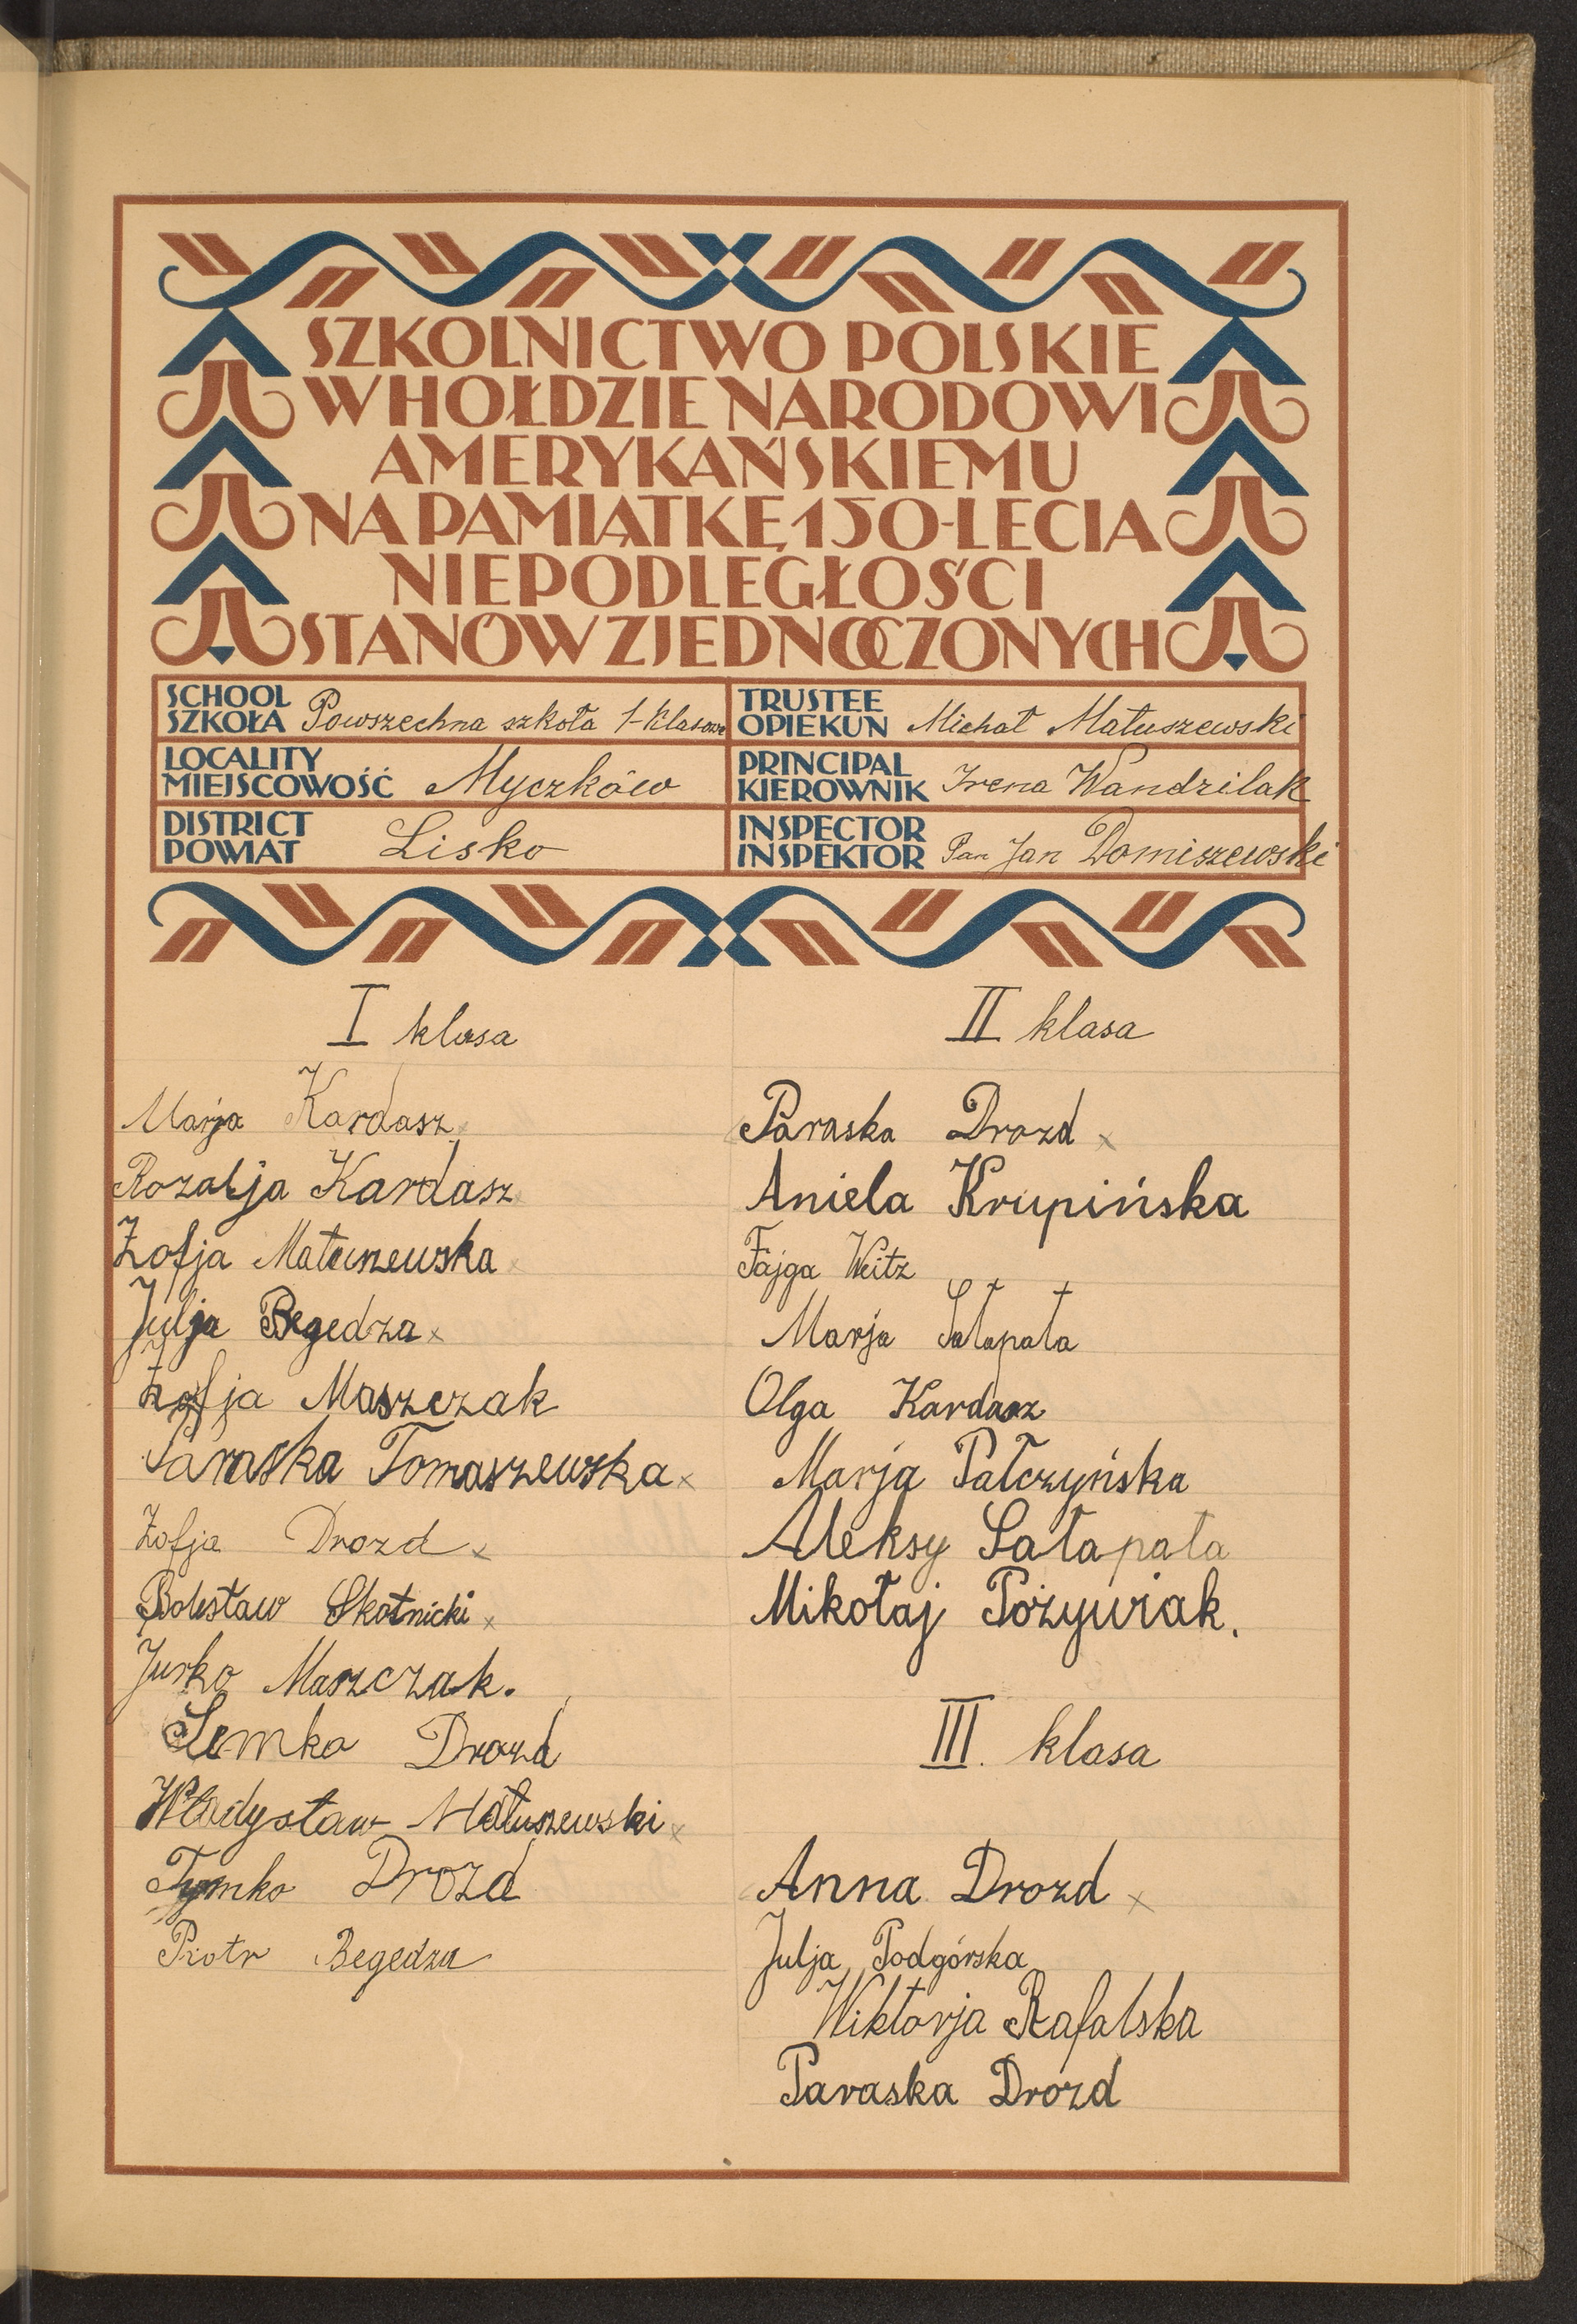 SZKOLNICTWO POLSKIE
W HOŁDZIE NARODOWI
AMERYKAŃSKIEMU
NA PAMIĄTKĘ 150-LECIA
NIEPODLEGŁOŚCI
STANÓW ZJEDNOCZONYCH
SCHOOL
SZKOŁA Powszechna szkoła 1-klasowa
TRUSTEE
OPIEKUN Michał Matuszewski
LOCALITY
MIEJSCOWOŚĆ Myczków
PRINCIPAL
KIEROWNIK Irena Wandzilak
DISTRICT
POWIAT Lisko
INSPECTOR
INSPEKTOR Pan Jan Domiszewski
I klasa
Marja Kardasz x
Rozalja Kardasz x
Zofja Matuszewska x
Julja Begedza x
Zofja Maszczak
Paraska Tomaszewska x
Zofja Drozd x
Bolesław Skotnicki x
Jurko Maszczak.
Semko Drozd
Władysław Matuszewski x
Tymko Drozd
Piotr Begedza
II klasa
Paraska Drozd x
Aniela Krupińska
Fajga Weitz
Marja Sałapata
Olga Kardasz
Marja Pałczyńska
Aleksy Sałapata
Mikołaj Pożywiak.
III. klasa
Anna Drozd x
Julja Podgórska
Wiktorja Rafalska
Paraska Drozd